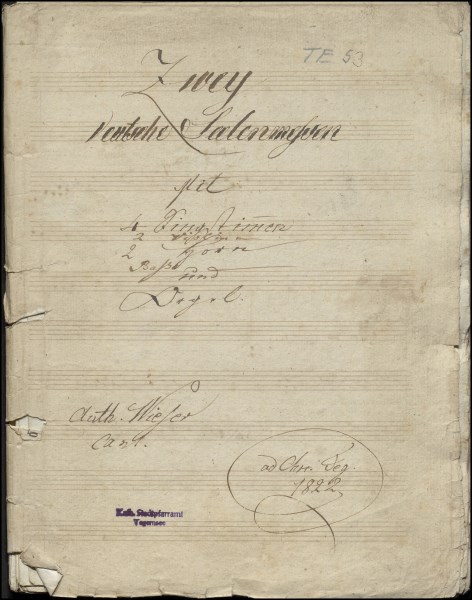 TE 53
Zwey
Deutsche Salenmessen
Mit
4 Singstimmen
2 Violinen
2 Horn
Baß
und
Orgel.
Auth. Wieser
Can.
ad Chor. Teg.
1822
Kath. Stadtpfarramt
Tegernsee